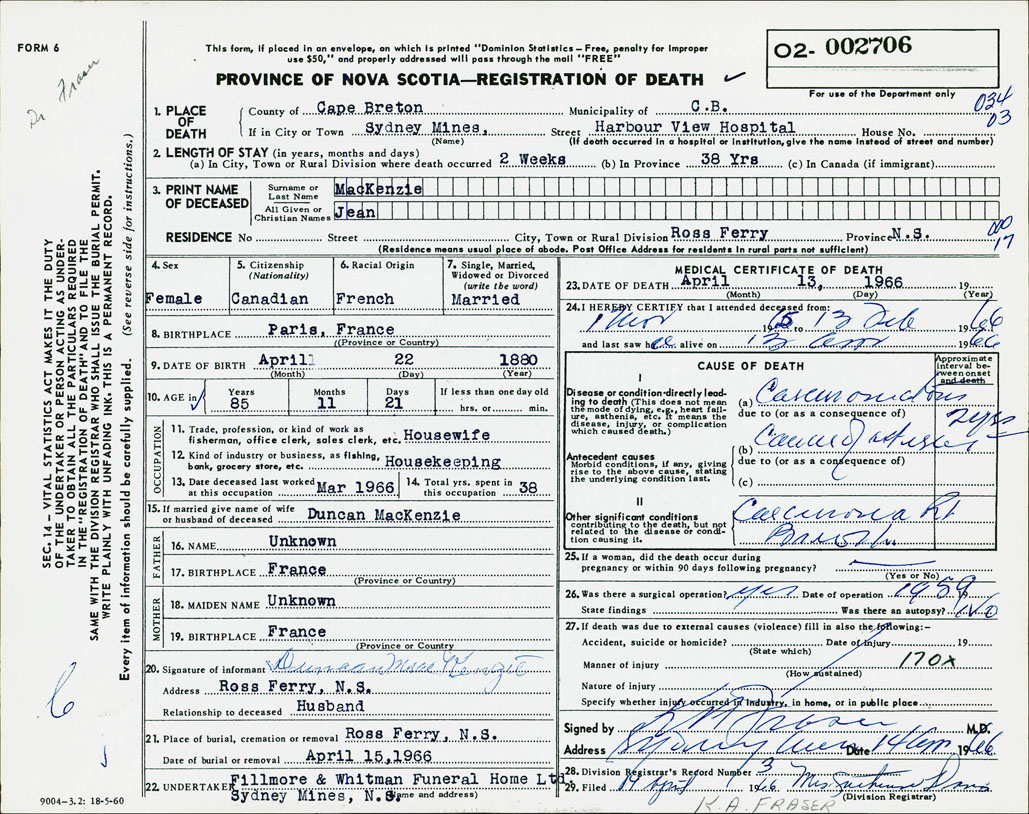 FORM 6
Dr Fraser
This form, if placed in an envelope, on which is printed "Dominion Statistics – Free, penalty for improper
use $50," and properly addressed will pass through the mail "FREE"
PROVINCE OF NOVA SCOTIA—REGISTRATION OF DEATH ✓
O2- 002706
For use of the Department only
034
03
1. PLACE OF DEATH
County of Cape Breton Municipality of C.B.
If in City or Town Sydney Mines, Street Harbour View Hospital House No.
(Name) (If death occurred in a hospital or institution, give the name instead of street and number)
2. LENGTH OF STAY (in years, months and days)
(a) In City, Town or Rural Division where death occurred 2 Weeks (b) In Province 38 Yrs (c) In Canada (if immigrant)
3. PRINT NAME OF DECEASED
Surname or Last Name MacKenzie
All Given or Christian Names Jean
000
17
RESIDENCE No Street City, Town or Rural Division Ross Ferry Province N.S.
(Residence means usual place of abode. Post Office Address for residents in rural parts not sufficient)
SEC. 14 – VITAL STATISTICS ACT MAKES IT THE DUTY
OF THE UNDERTAKER OR PERSON ACTING AS UNDER-
TAKER TO OBTAIN ALL THE PARTICULARS REQUIRED
IN THE "REGISTRATION OF DEATH" AND TO FILE THE
SAME WITH THE DIVISION REGISTRAR WHO SHALL ISSUE THE BURIAL PERMIT.
WRITE PLAINLY WITH UNFADING INK. THIS IS A PERMANENT RECORD.
Every item of information should be carefully supplied. (See reverse side for instructions.)
4. Sex Female
5. Citizenship (Nationality) Canadian
6. Racial Origin French
7. Single, Married, Widowed or Divorced (write the word) Married
8. BIRTHPLACE Paris, France
(Province or Country)
9. DATE OF BIRTH April 22 1880
(Month) (Day) (Year)
10. AGE in Years 85 Months 11 Days 21 If less than one day old hrs. or min.
OCCUPATION
11. Trade, profession, or kind of work as
fisherman, office clerk, sales clerk, etc. Housewife
12. Kind of industry or business, as fishing,
bank, grocery store, etc. Housekeeping
13. Date deceased last worked at this occupation Mar 1966 14. Total yrs. spent in this occupation 38
15. If married give name of wife
or husband of deceased Duncan MacKenzie
FATHER
16. NAME Unknown
17. BIRTHPLACE France
(Province or Country)
MOTHER
18. MAIDEN NAME Unknown
19. BIRTHPLACE France
(Province or Country)
20. Signature of informant Duncan MacKenzie
Address Ross Ferry, N.S.
Relationship to deceased Husband
21. Place of burial, cremation or removal Ross Ferry, N.S.
Date of burial or removal April 15,1966
22. UNDERTAKER Fillmore & Whitman Funeral Home Ltd.
Sydney Mines, N.S. (Name and address)
6
9004–3.2: 18-5-60
MEDICAL CERTIFICATE OF DEATH
23. DATE OF DEATH April 13, 1966 19
(Month) (Day) (Year)
24. I HEREBY CERTIFY that I attended deceased from:
1 Nov 1965 to 13 Feb 1966
and last saw her alive on 13 1966
CAUSE OF DEATH
Approximate interval between onset and death
I
Disease or condition directly leading to death (This does not mean the mode of dying, e.g., heart failure, asthenia, etc. It means the disease, injury, or complication which caused death.)
(a)
due to (or as a consequence of) 2 yrs
Antecedent causes
Morbid conditions, if any, giving rise to the above cause, stating the underlying condition last.
(b)
due to (or as a consequence of)
(c)
II
Other significant conditions contributing to the death, but not related to the disease or condition causing it.
Carcinoma Rt.
25. If a woman, did the death occur during
pregnancy or within 90 days following pregnancy? —
(Yes or No)
26. Was there a surgical operation? yes Date of operation 1959 19
State findings Was there an autopsy? No
27. If death was due to external causes (violence) fill in also the following:–
Accident, suicide or homicide? Date of injury 19
(State which)
Manner of injury 170X
(How sustained)
Nature of injury
Specify whether injury occurred in industry, in home, or in public place
Signed by K A Fraser M.D.
Address Sydney Mines Date 14 Apr 1966
28. Division Registrar's Record Number 3
29. Filed 14 April 1966 Mrs
(Division Registrar)
K.A. FRASER